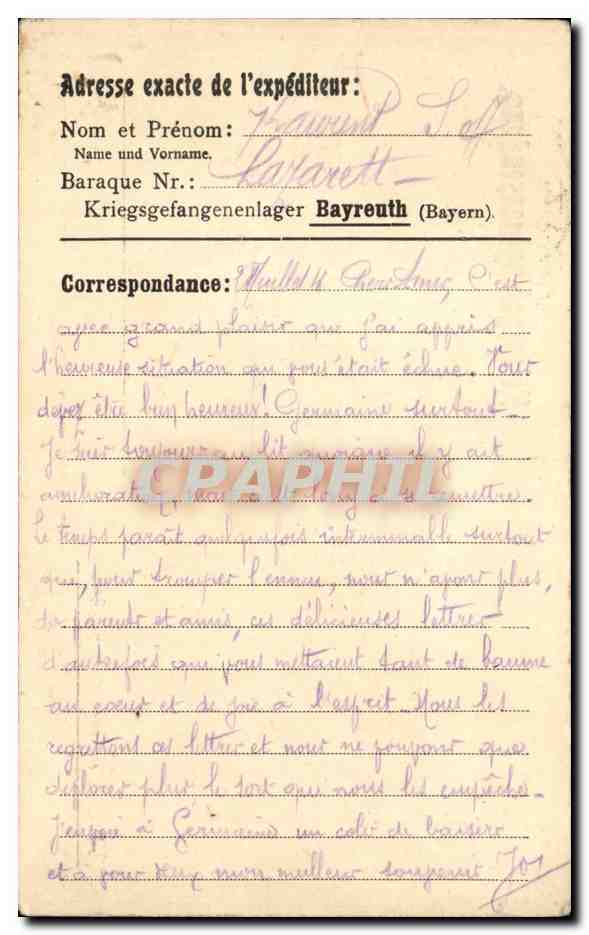 Adresse exacte de l'expéditeur:
Nom et Prénom: Laurent
Name und Vorname.
Baraque Nr.: Lazarett
Kriegsgefangenenlager Bayreuth (Bayern).
Correspondance: Juillet C'est
avec grand plaisir que j'ai appris
l'heureuse situation qui vous était échue. Vous
devez être bien heureux! Germaine surtout
Je suis toujours au lit quoique il y ait
amélioration, mais c'est long à se remettre.
Le temps paraît quelquefois interminable surtout
que, pour tromper l'ennui, nous n'avons plus,
de parents et amis, ces délicieuses lettres
d'autrefois qui vous mettaient tant de baume
au cœur et de joie à l'esprit. Nous les
regrettons ces lettres et nous ne pouvons que
déplorer plus le sort qui nous les empêche
J'envoie à Germaine un colis de baisers
et à vous deux mon meilleur souvenir
CPAPHIL